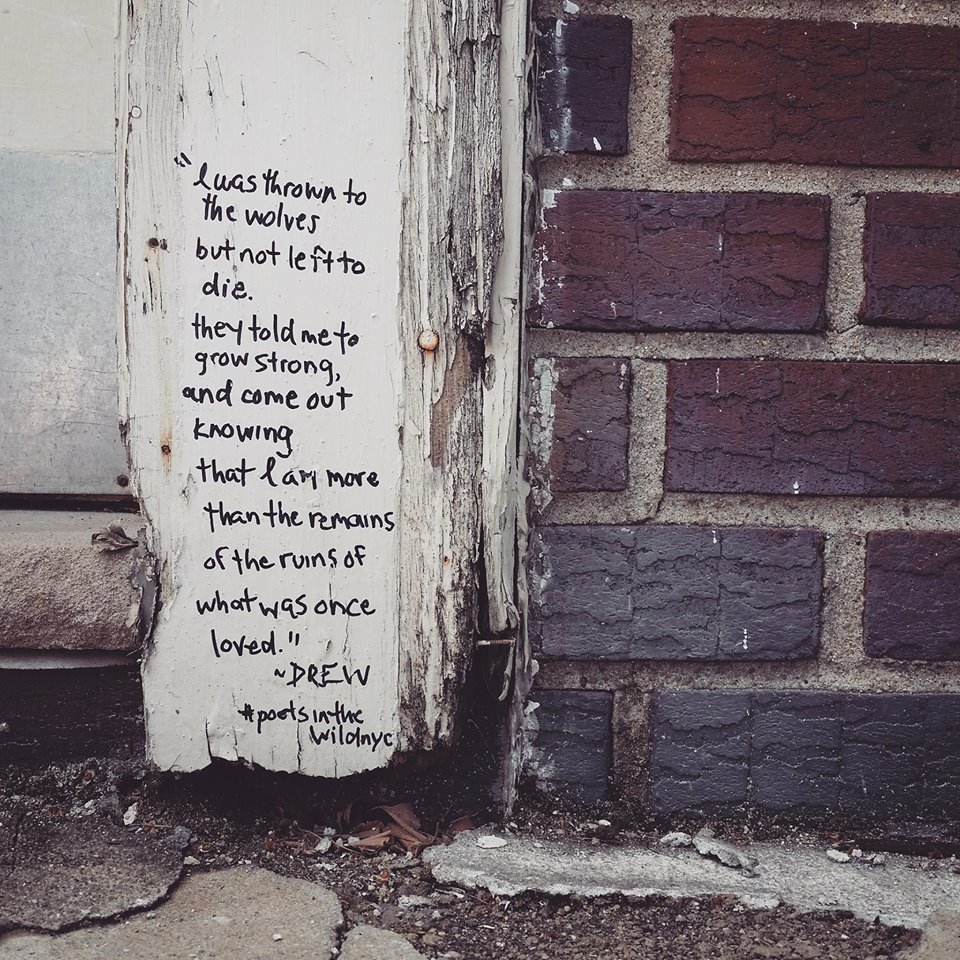 "I was thrown to
the wolves
but not left to
die.
they told me to
grow strong,
and come out
knowing
that I am more
than the remains
of the ruins of
what was once
loved."
~DREW
#poetsinthe
wildnyc